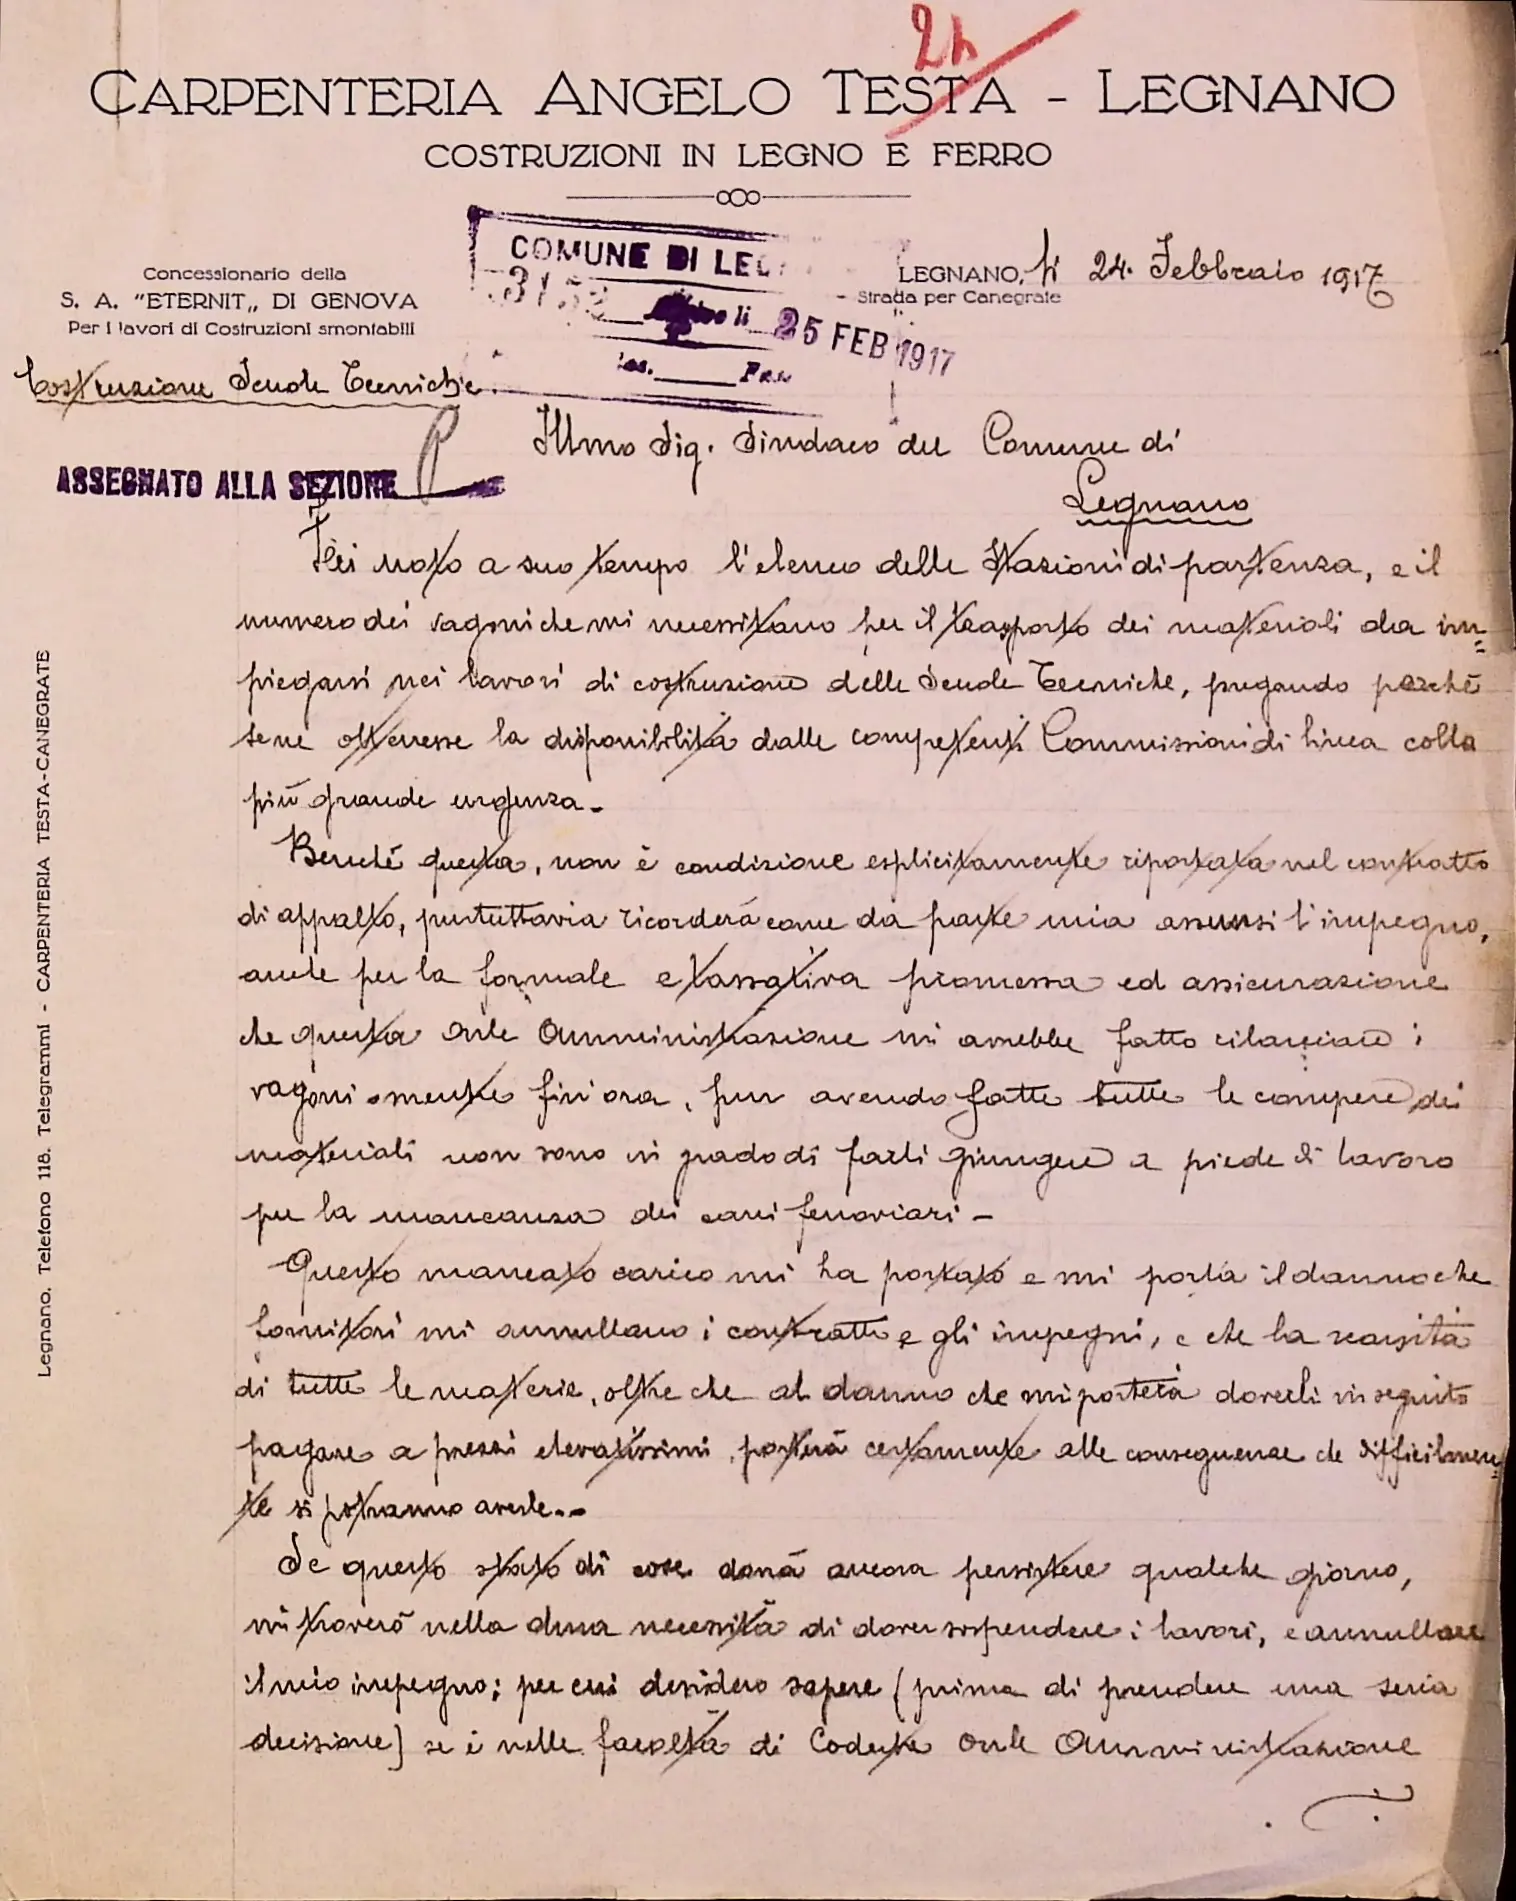 CARPENTERIA ANGELO TESTA - LEGNANO
COSTRUZIONI IN LEGNO E FERRO
Concessionario della
S. A. "ETERNIT„ DI GENOVA
Per i lavori di Costruzioni smontabili
COMUNE DI LEG
3152
Arrivo li 25 FEB 1917
LEGNANO, li 24. Febbraio 1917
Strada per Canegrate
Costruzione Scuole Tecniche.
Illmo Sig. Sindaco del Comune di
Legnano
ASSEGNATO ALLA SEZIONE
Fei noto a suo tempo l'elenco delle Stazioni di partenza, e il
numero dei vagoni che mi necessitano per il trasporto dei materiali da im=
piegarsi nei lavori di costruzione delle Scuole Tecniche, pregando perché
se ne ottenesse la disponibilità dalle competenti Commissioni di linea colla
più grande urgenza.-
Benché questa, non è condizione esplicitamente riportata nel contratto
di appalto, puttuttavia ricorderà come da parte mia assunsi l'impegno,
anche per la formale e tassativa promessa ed assicurazione
che questa Onle Amministrazione mi avrebbe fatto rilasciare i
vagoni mentre fin'ora, pur avendo fatte tutte le compere dei
materiali non sono in grado di farli giungere a piede di lavoro
per la mancanza dei carri ferroviari -
Questo mancato carico mi ha portato e mi porta il danno che
fornitori mi annullano i contratti e gli impegni, e che la scarsità
di tutte le materie, oltre che al danno che mi porterà doverli in seguito
pagare a prezzi elevatissimi, porterà certamente alle conseguenze che difficilmen=
te si potranno averle.-
Se questo stato di cose dovrà ancora persistere qualche giorno,
mi troverò nella dura necessità di dover sospendere i lavori, e annullare
il mio impegno; per cui desidero sapere (prima di prendere una seria
decisione) se è nelle facoltà di Codesta Onle Amministrazione
Legnano. Telefono 118. Telegrammi - CARPENTERIA TESTA-CANEGRATE